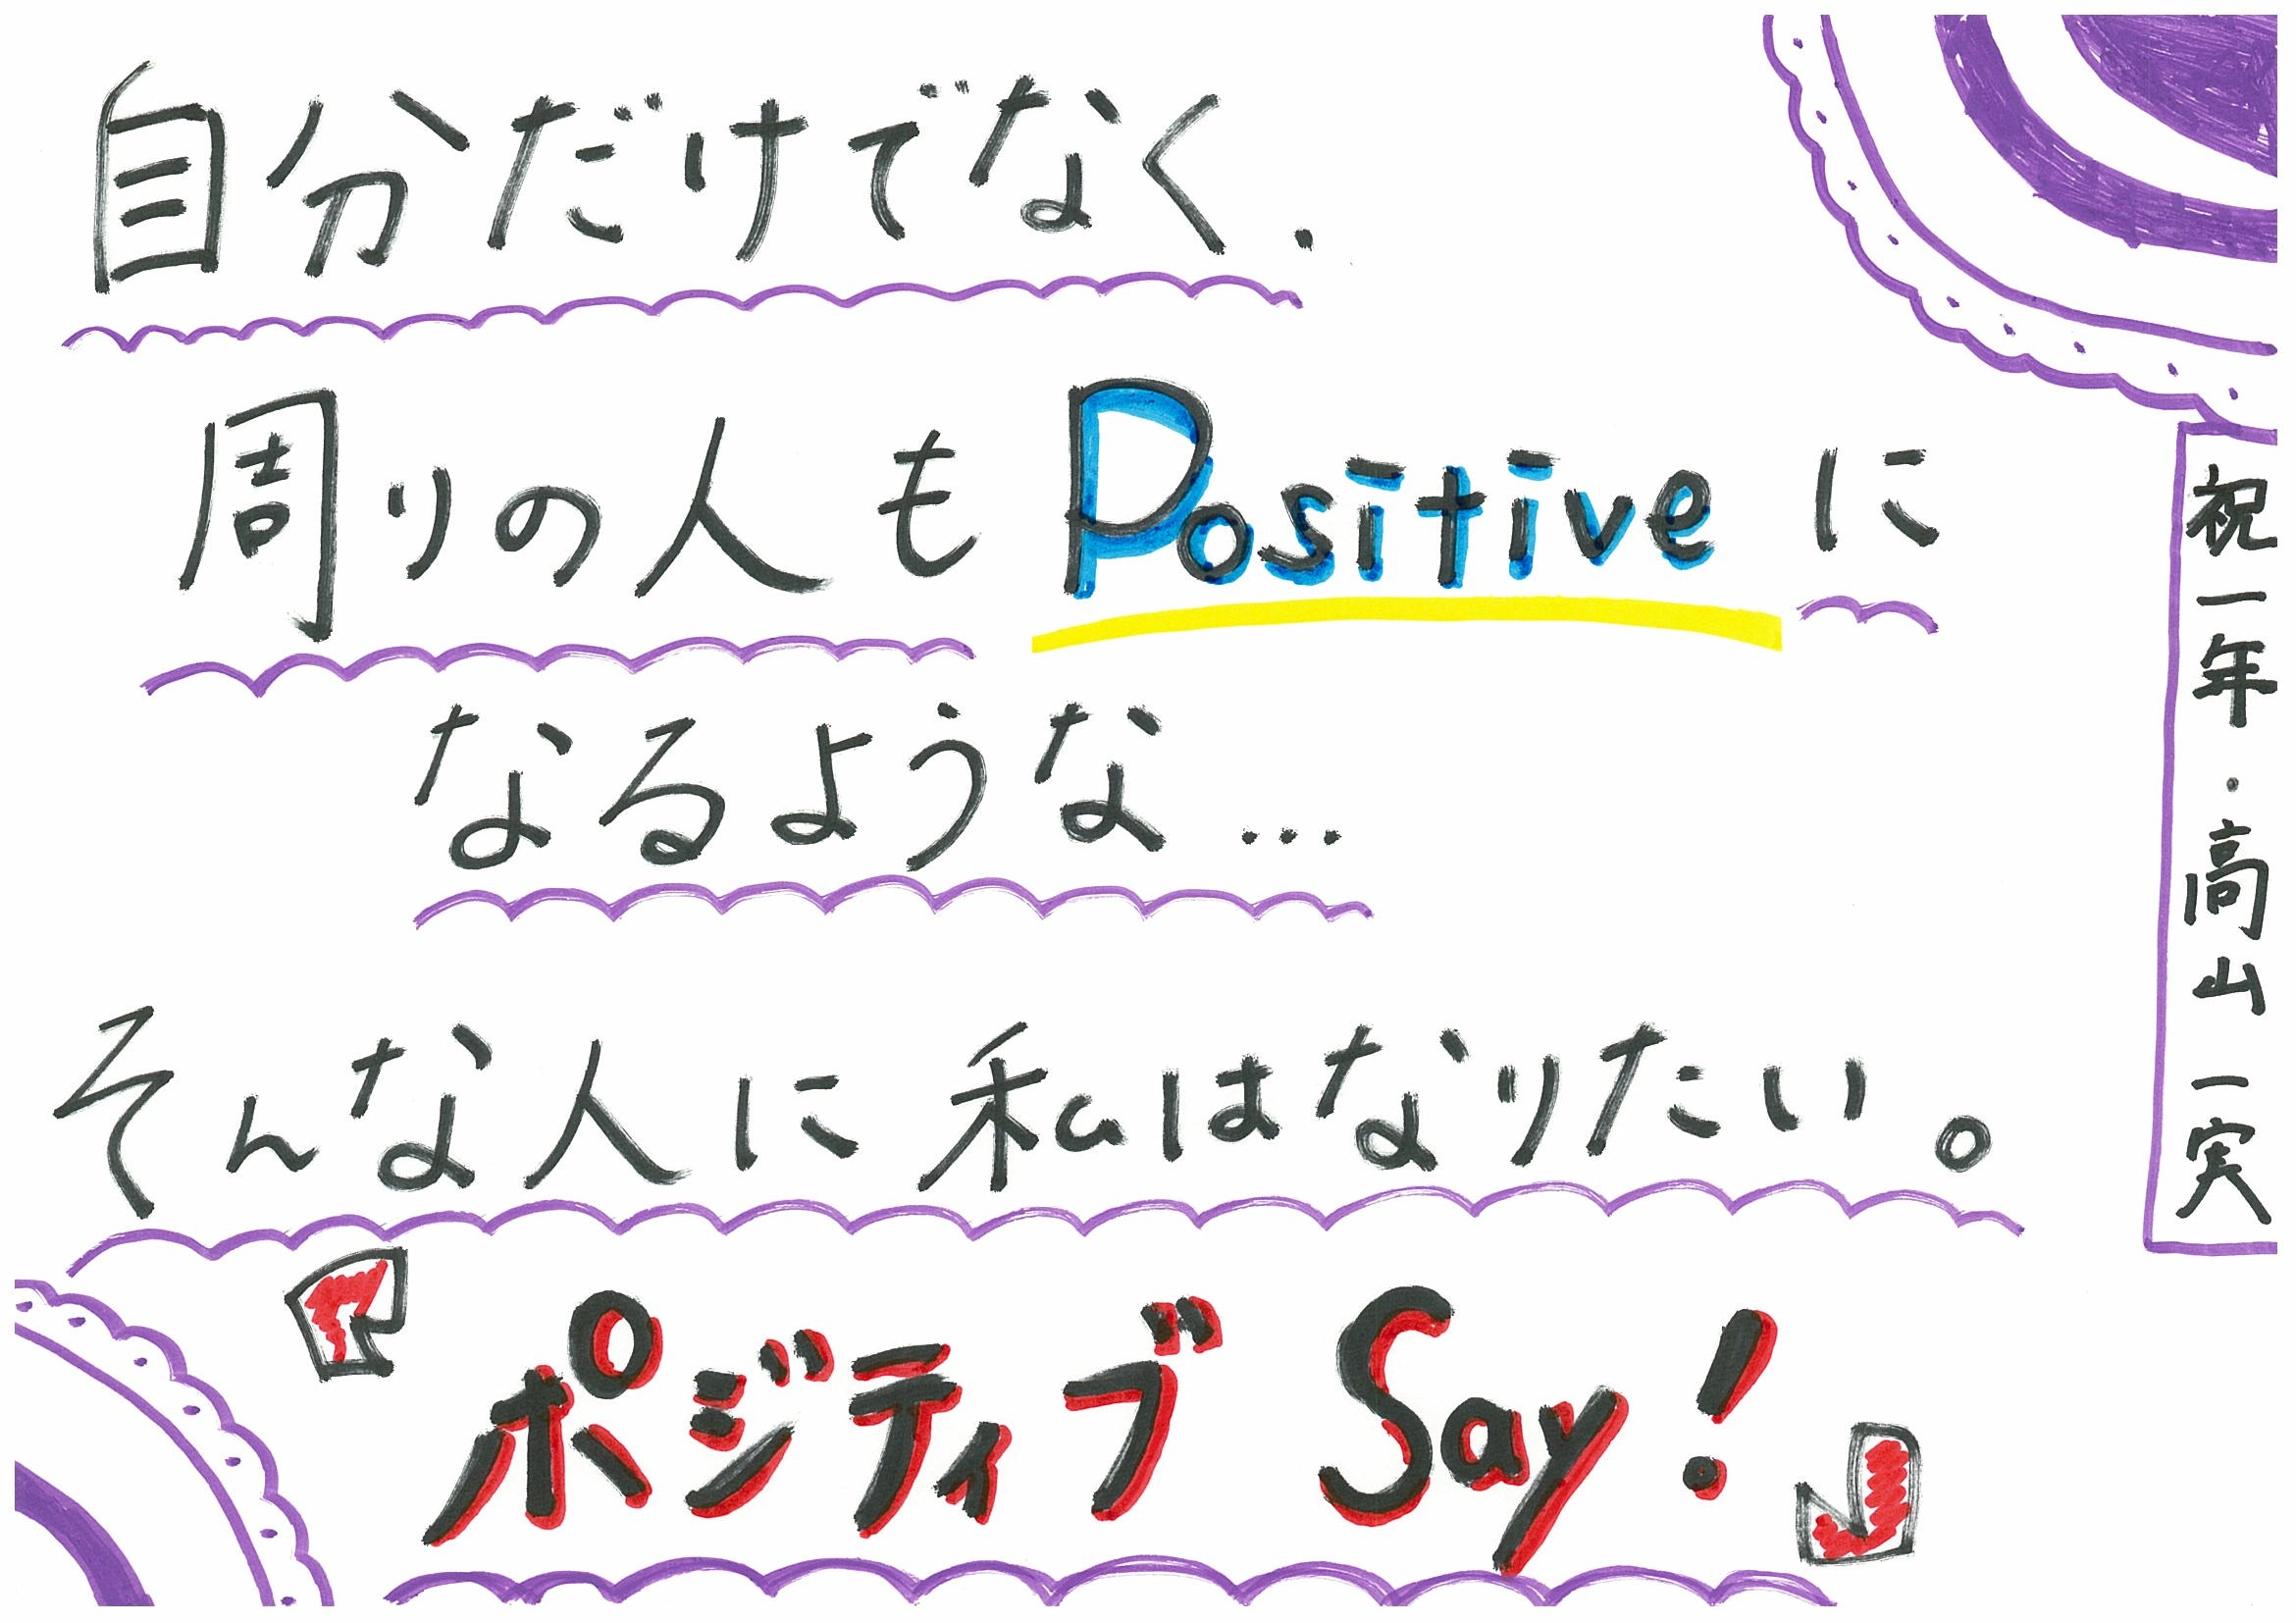 自分だけでなく.
周りの人もPositiveに
なるような...
そんな人に私はなりたい。
『ポジティブ Say!』
祝一年・高山一実